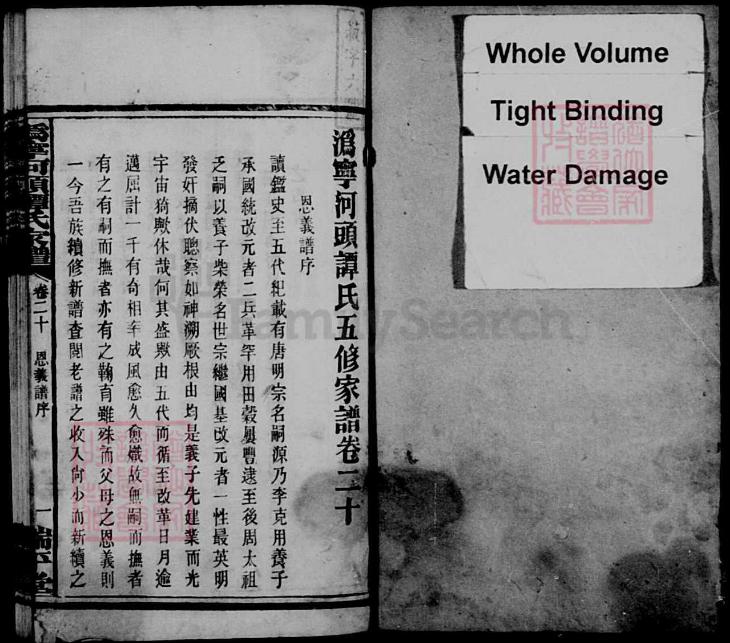 Whole Volume
Tight Binding
Water Damage
溈寧河頭譚氏五修家譜卷二十
恩義譜序
讀鑑史至五代紀載有唐明宗名嗣源乃李克用養子
承國統改元者二兵革罕用田穀屢豐逮至後周太祖
乏嗣以養子柴榮名世宗繼國基改元者一性最英明
發奸摘伏聰察如神溯厥根由均是義子先建業而光
宇宙猗歟休哉何其盛歟由五代而循至改革日月逾
邁屈計一千有奇相率成風愈久愈熾故無嗣而撫者
有之有嗣而撫者亦有之鞠育雖殊而父母之恩義則
一今吾族續修新譜查閱老譜之收入尚少而新續之
溈寧河頭譚氏家譜
卷二十
恩義譜序
一
FamilySearch